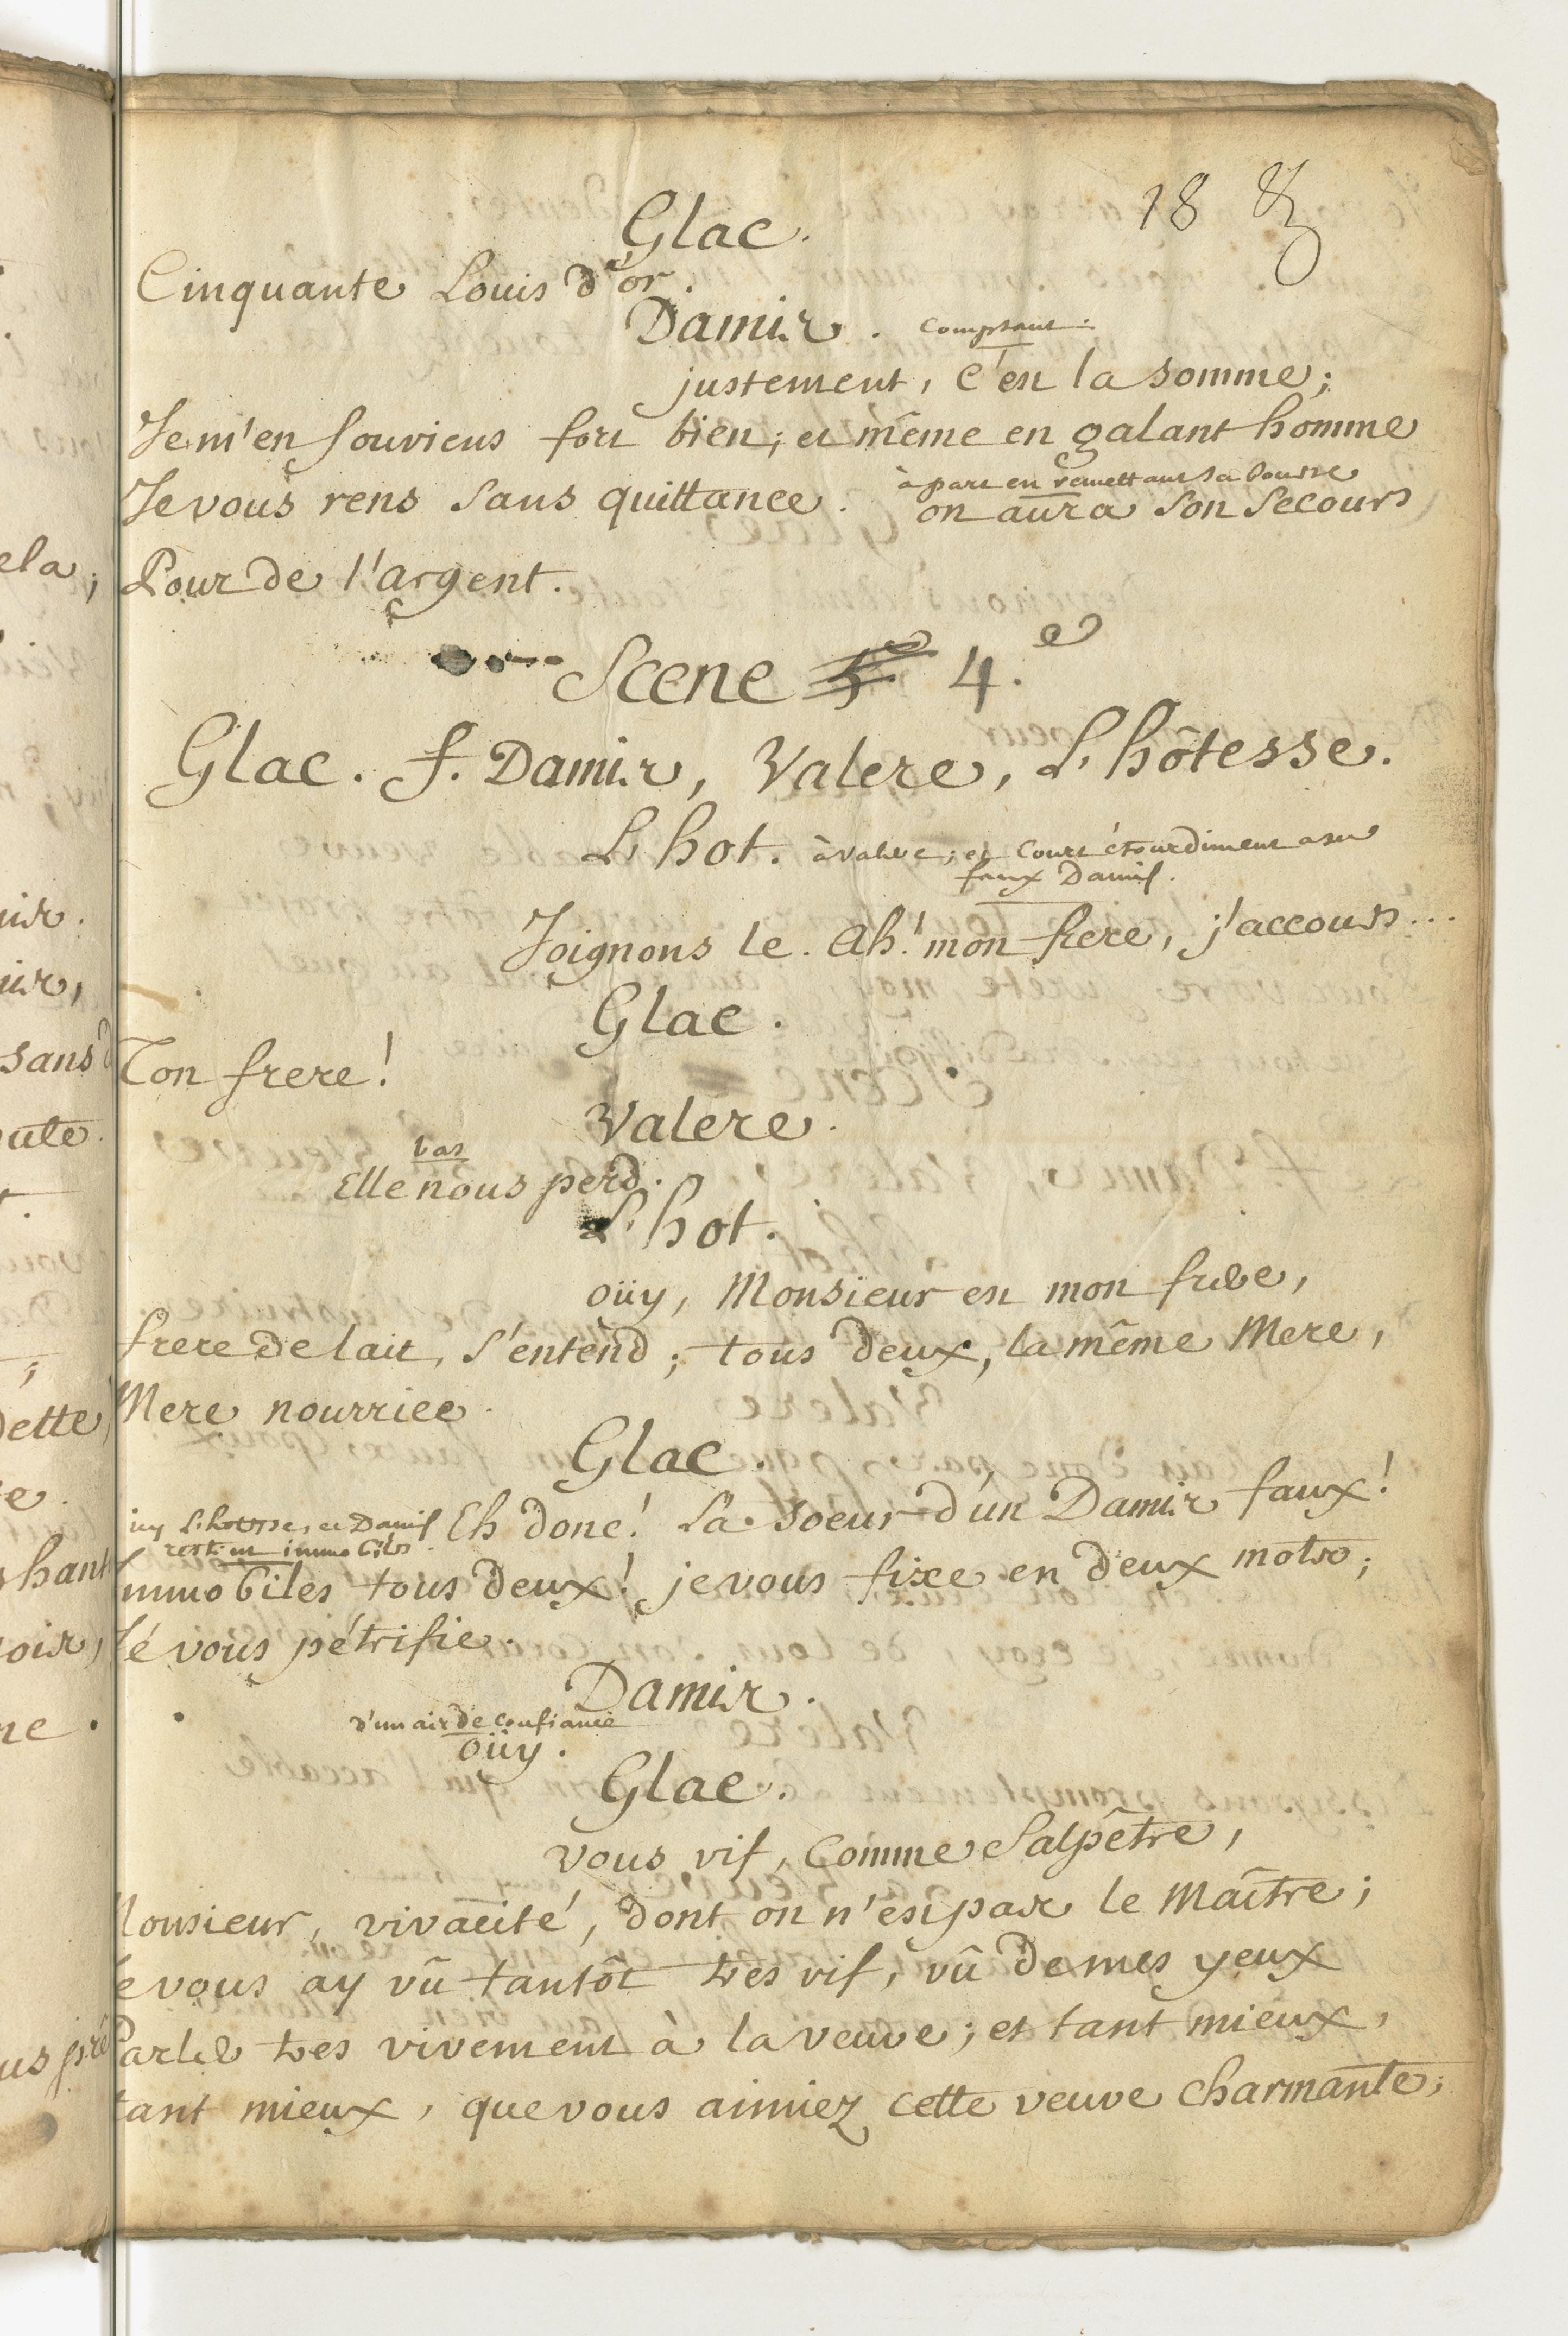 18
Glac.
Cinquante Louis d'or.
Damir. Comptant.
justement, c'est la somme;
Je m'en souviens fort bien; et même en galant homme
à part en remettant sa bourse
Je vous rens sans quittance. on aura son secours
Pour de l'argent.
Scene 4.e
Glac. f. Damir, Valere, L'hôtesse.
L'hot. à valere, et court étourdiment au
faux Damis.
Joignons le. Ah! mon frere, j'accours...
Glac.
Ton frere!
Valere.
bas
Elle nous perd.
L'hot.
oüy, Monsieur est mon frere,
frere de lait, s'entend; tous deux, la même Mere,
Mere nourrice.
Glac.
icy L'hotesse, et Damis
restent immobiles.
Eh donc! La soeur d'un Damir faux!
Immobiles tous deux! je vous fixe en deux mots;
Jé vous pétrifie.
Damir.
d'un air de confiance
oüy.
Glac.
vous vif, comme Salpêtre,
Monsieur, vivacité, dont on n'est pas le Maître;
Je vous ay vû tantôt tres vif, vû de mes yeux
Parler tres vivement à la veuve; et tant mieux,
tant mieux, que vous aimiez cette veuve charmante;